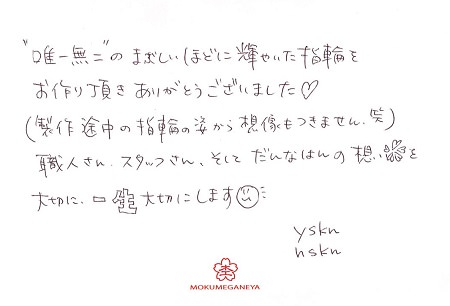 "唯一無二"の まぶしいほどに輝やいた指輪を
お作り頂き ありがとうございました♡
(製作途中の指輪の姿から想像もつきません。笑)
職人さん、スタッフさん、そして だんなはんの 想いを
大切に、一生大切にします
yskn
nskn
MOKUMEGANEYA